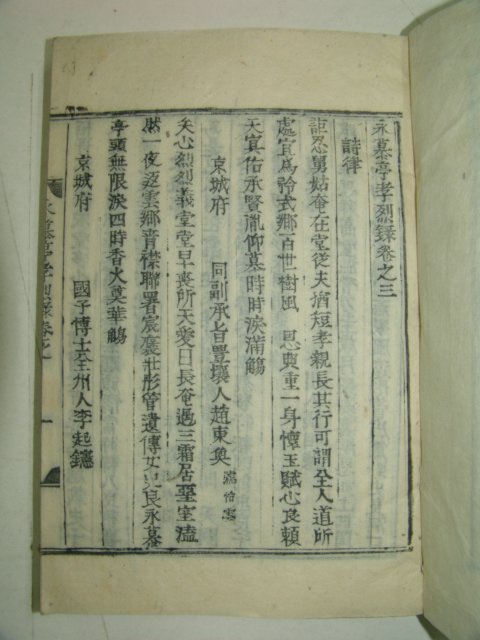 永慕亭孝烈錄卷之三
詩律
詎忍舅姑奄在堂從夫猶短孝親長其行可謂全人道所
處宜爲矜式鄉百世樹風 恩典重一身憛玉賦心良賴
天寘佑承賢胤仰慕時時淚滿觴
京城府 同副承旨豊壤人趙東奐
矢心烈烈義堂堂早喪所天愛日長奄過三霜居堊室溘
然一夜返雲鄉青襟聯署宸褒壯彤管遺傳女史良永慕
亭頭無限淚四時香火奠華觴
京城府 國子博士全州人李起鑣
永慕亭孝烈錄卷之 一